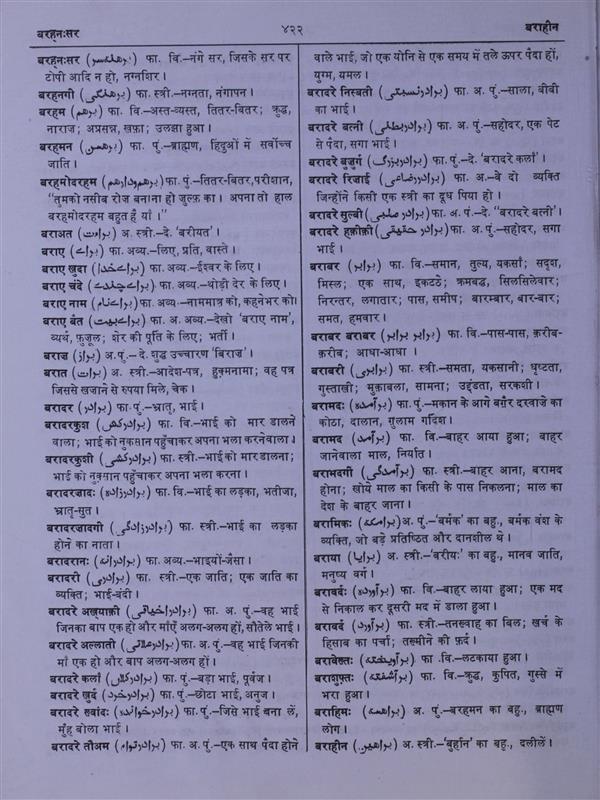 बरह्नःसर
४२२
बराहीन
बरह्नःसर (برهنہ سر) फा. वि.–नंगे सर, जिसके सर पर
टोपी आदि न हो, नग्नशिर।
बरह्नगी (برهنگی) फा. स्त्री.–नग्नता, नंगापन।
बरहम (برهم) फा. वि.–अस्त-व्यस्त, तितर-बितर; क्रुद्ध,
नाराज; अप्रसन्न, ख़फ़ा; उलझा हुआ।
बरहमन (برهمن) फा. पुं.–ब्राह्मण, हिंदुओं में सर्वोच्च
जाति।
बरहमोदरहम (برهم‌ودرهم) फा. पुं.–तितर-बितर, परीशान,
"तुमको नसीब रोज बनाना हो जुल्फ़ का। अपना तो हाल
बरहमोदरहम बहुत है याँ।"
बराअत (براءت) अ. स्त्री.–दे. 'बरीयत'।
बराए (براے) फा. अव्य.–लिए, प्रति, वास्ते।
बराए ख़ुदा (براے خدا) फा. अव्य.–ईश्वर के लिए।
बराए चंदे (براے چندے) फा. अव्य.–थोड़ी देर के लिए।
बराए नाम (براے نام) फा. अव्य.–नाममात्र को, कहनेभर को।
बराए बैत (براے بیت) फा. अ. अव्य.–देखो 'बराए नाम',
व्यर्थ, फ़ुज़ूल; शेर की पूर्ति के लिए; भर्ती।
बराज (براز) अ. पुं.–दे. शुद्ध उच्चारण 'बिराज'।
बरात (برات) अ. स्त्री.–आदेश-पत्र, हुक्मनामा; वह पत्र
जिससे खजाने से रुपया मिले, चेक।
बरादर (برادر) फा. पुं.–भ्रातृ, भाई।
बरादरकुश (برادرکش) फा. वि.–भाई को मार डालने
वाला; भाई को नुकसान पहुँचाकर अपना भला करनेवाला।
बरादरकुशी (برادرکشی) फा. स्त्री.–भाई को मार डालना;
भाई को नुक़्सान पहुँचाकर अपना भला करना।
बरादरजादः (برادرزاده) फा. वि.–भाई का लड़का, भतीजा,
भ्रातृ-सुत।
बरादरजादगी (برادرزادگی) फा. स्त्री.–भाई का लड़का
होने का नाता।
बरादरानः (برادرانہ) फा. अव्य.–भाइयों-जैसा।
बरादरी (برادری) फा. स्त्री.–एक जाति; एक जाति का
व्यक्ति; भाई-बंदी।
बरादरे अख़्याफ़ी (برادر اخیافی) फा. अ. पुं.–वह भाई
जिनका बाप एक हो और माएँ अलग-अलग हों, सौतेले भाई।
बरादरे अल्लाती (برادر علاتی) फा. अ. पुं.–वह भाई जिनकी
माँ एक हो और बाप अलग-अलग हों।
बरादरे कलाँ (برادر کلاں) फा. पुं.–बड़ा भाई, पूर्वज।
बरादरे ख़ुर्द (برادر خرد) फा. पुं.–छोटा भाई, अनुज।
बरादरे ख़्वांदः (برادر خوانده) फा. पुं.–जिसे भाई बना लें,
मुँह बोला भाई।
बरादरे तौअम (برادر توام) फा. अ. पुं.–एक साथ पैदा होने
वाले भाई, जो एक योनि से एक समय में तले ऊपर पैदा हों,
युग्म, यमल।
बरादरे निस्बती (برادر نسبتی) फा. अ. पुं.–साला, बीबी
का भाई।
बरादरे बत्नी (برادر بطنی) फा. अ. पुं.–सहोदर, एक पेट
से पैदा, सगा भाई।
बरादरे बुज़ुर्ग (برادر بزرگ) फा. पुं.–दे. 'बरादरे कलाँ'।
बरादरे रिजाई (برادر رضاعی) फा. अ.–वे दो व्यक्ति
जिन्होंने किसी एक स्त्री का दूध पिया हो।
बरादरे सुल्बी (برادر صلبی) फा. अ. पुं.–दे. "बरादरे बत्नी'।
बरादरे हक़ीक़ी (برادر حقیقی) फा. अ. पुं.–सहोदर, सगा
भाई।
बराबर (برابر) फा. वि.–समान, तुल्य, यकसाँ; सदृश,
मिस्ल; एक साथ, इकट्ठे; क्रमबद्ध, सिलसिलेवार;
निरन्तर, लगातार; पास, समीप; बारम्बार, बार-बार;
समत, हमवार।
बराबर बराबर (برابر برابر) फा. वि.–पास-पास, क़रीब-
क़रीब; आधा-आधा।
बराबरी (برابری) फा. स्त्री.–समता, यकसानी; धृष्टता,
गुस्ताखी; मुक़ाबला, सामना; उद्दंडता, सरकशी।
बरामदः (برآمده) फा. पुं.–मकान के आगे बग़ैर दरवाजे का
कोठा, दालान, गुलाम गर्दिश।
बरामद (برآمد) फा. वि.–बाहर आया हुआ; बाहर
जानेवाला माल, निर्यात।
बरामदगी (برآمدگی) फा. स्त्री.–बाहर आना, बरामद
होना; खोये माल का किसी के पास निकलना; माल का
देश के बाहर जाना।
बरामिकः (برامکہ) अ. पुं.–'बर्मक' का बहु., बर्मक वंश के
व्यक्ति, जो बड़े प्रतिष्ठित और दानशील थे।
बराया (برایا) अ. स्त्री.–'बरीयः' का बहु., मानव जाति,
मनुष्य वर्ग।
बरावर्दः (برآورده) फा. वि.–बाहर लाया हुआ; एक मद
से निकाल कर दूसरी मद में डाला हुआ।
बरावर्द (برآورد) फा. स्त्री.–तनख्वाह का बिल; खर्च के
हिसाब का पर्चा; तख्मीने की फ़र्द।
बरावेख़्तः (برآویختہ) फा. वि.–लटकाया हुआ।
बराशुफ़्तः (برآشفتہ) फा. वि.–क्रुद्ध, कुपित, गुस्से में
भरा हुआ।
बराहिमः (براهمہ) अ. पुं.–बरहमन का बहु., ब्राह्मण
लोग।
बराहीन (براهین) अ. स्त्री.–'बुर्हान' का बहु., दलीलें।